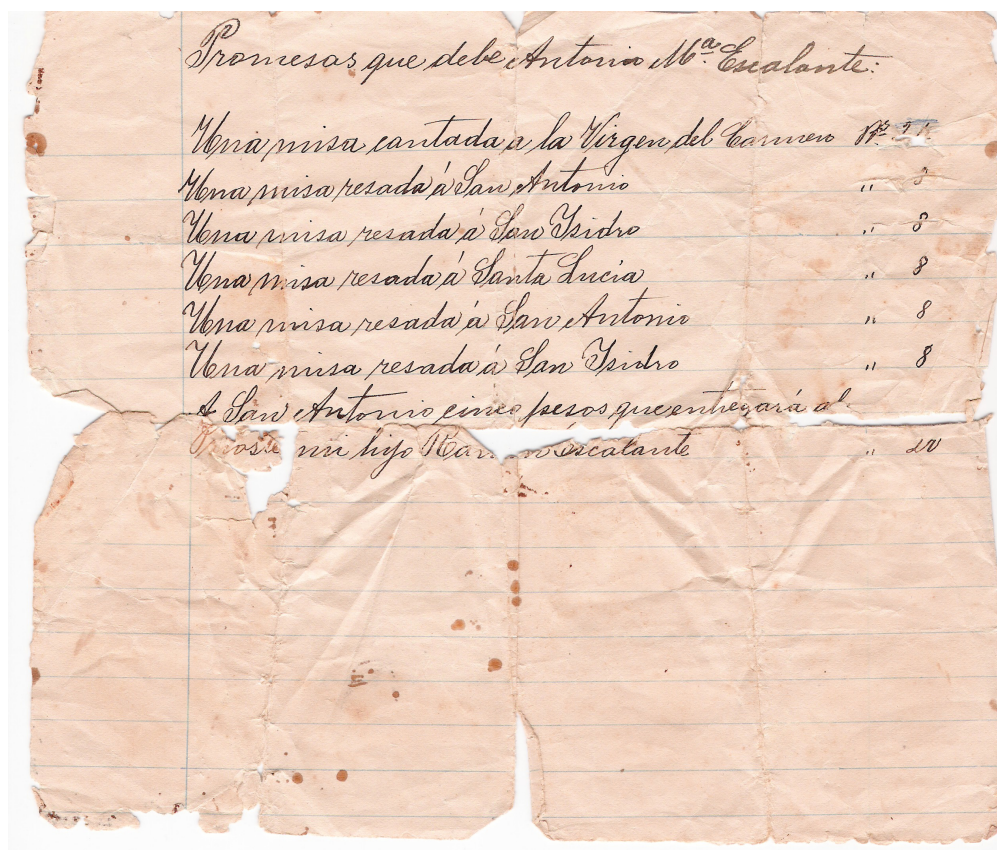 Promesas que debe Antonio Mª. Escalante:
Una misa cantada a la Virgen del Carmen
Una misa resada á San Antonio " 8
Una misa resada á San Isidro " 8
Una misa resada á Santa Lucia " 8
Una misa resada á San Antonio " 8
Una misa resada á San Isidro " 8
A San Antonio cinco pesos que entregará al
mi hijo Escalante "